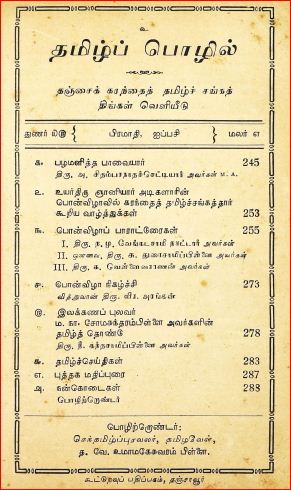 உ
தமிழ்ப் பொழில்
தஞ்சைக் கரந்தைத் தமிழ்ச் சங்கத்
திங்கள் வெளியீடு
துணர் ௧௫ } பிரமாதி, ஐப்பசி { மலர் ௭
௧. பழமளித்த பாவையார் 245
திரு. அ. சிதம்பரநாதச்செட்டியார் அவர்கள் M. A.
௨. உயர்திரு ஞானியார் அடிகளாரின்
பொன்விழாவில் கரந்தைத் தமிழ்ச்சங்கத்தார்
கூறிய வாழ்த்துக்கள் 253
௩. பொன்விழாப் பாராட்டுரைகள் 255
I. திரு. ந. மு. வேங்கடசாமி நாட்டார் அவர்கள்
II. ஔவை, திரு. சு. துரைசாமிப்பிள்ளை அவர்கள்
III. திரு. க. வெள்ளைவாரணன் அவர்கள்
௪. பொன்விழா நிகழ்ச்சி
வித்வான் திரு. வீ. அரங்கன்
௫. இலக்கணப் புலவர்
ம. நா. சோமசுந்தரம்பிள்ளை அவர்களின்
தமிழ்த் தொண்டு 278
திரு. நீ. கந்தசாமிப்பிள்ளை அவர்கள்
௬. தமிழ்ச்செய்திகள் 283
௭. புத்தக மதிப்புரை 287
௮. நன்கொடைகள் 288
பொழிற்றொண்டர்
பொழிற்றொண்டர்:
செந்தமிழ்ப்புரவலர், தமிழவேள்,
த. வே. உமாமகேசுவரம் பிள்ளை.
கூட்டுறவுப் பதிப்பகம், தஞ்சாவூர்